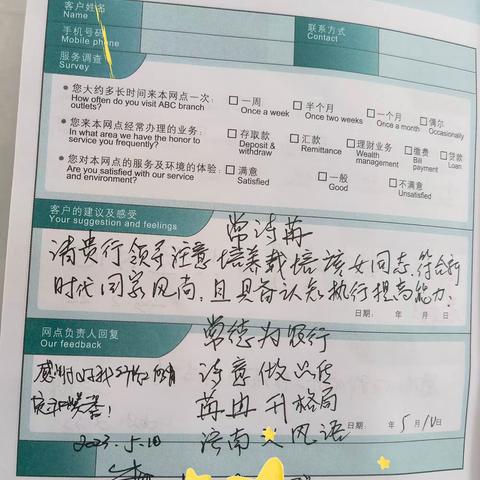 客户姓名
Name
联系方式
Contact
手机号码
Mobile phone
服务调查
Survey
您大约多长时间来本网点一次:
How often do you visit ABC branch
outlets?
□ 一周 □ 半个月 □ 一个月 □ 偶尔
Once a week Once two weeks Once a month Occasionally
您来本网点经常办理的业务:
In what area we have the honor to
service you frequently?
□ 存取款 □ 汇款 □ 理财业务 □ 缴费 □ 贷款
Deposit & withdraw Remittance Wealth management Bill payment Loan
您对本网点的服务及环境的体验:
Are you satisfied with our service
and environment?
□ 满意 □ 一般 □ 不满意
Satisfied Good Unsatisfied
客户的建议及感受
Your suggestion and feelings
常诗苒
请贵行领导注意培养栽培该女同志,符合新
时代国家风尚,且具备认知执行提高能力;
日期: 年 月 日
网点负责人回复
Our feedback
常德为银行
感谢
诗意做
苒冉升格局
济南 风语
2023.5.10
日期: 年 5 月 10 日